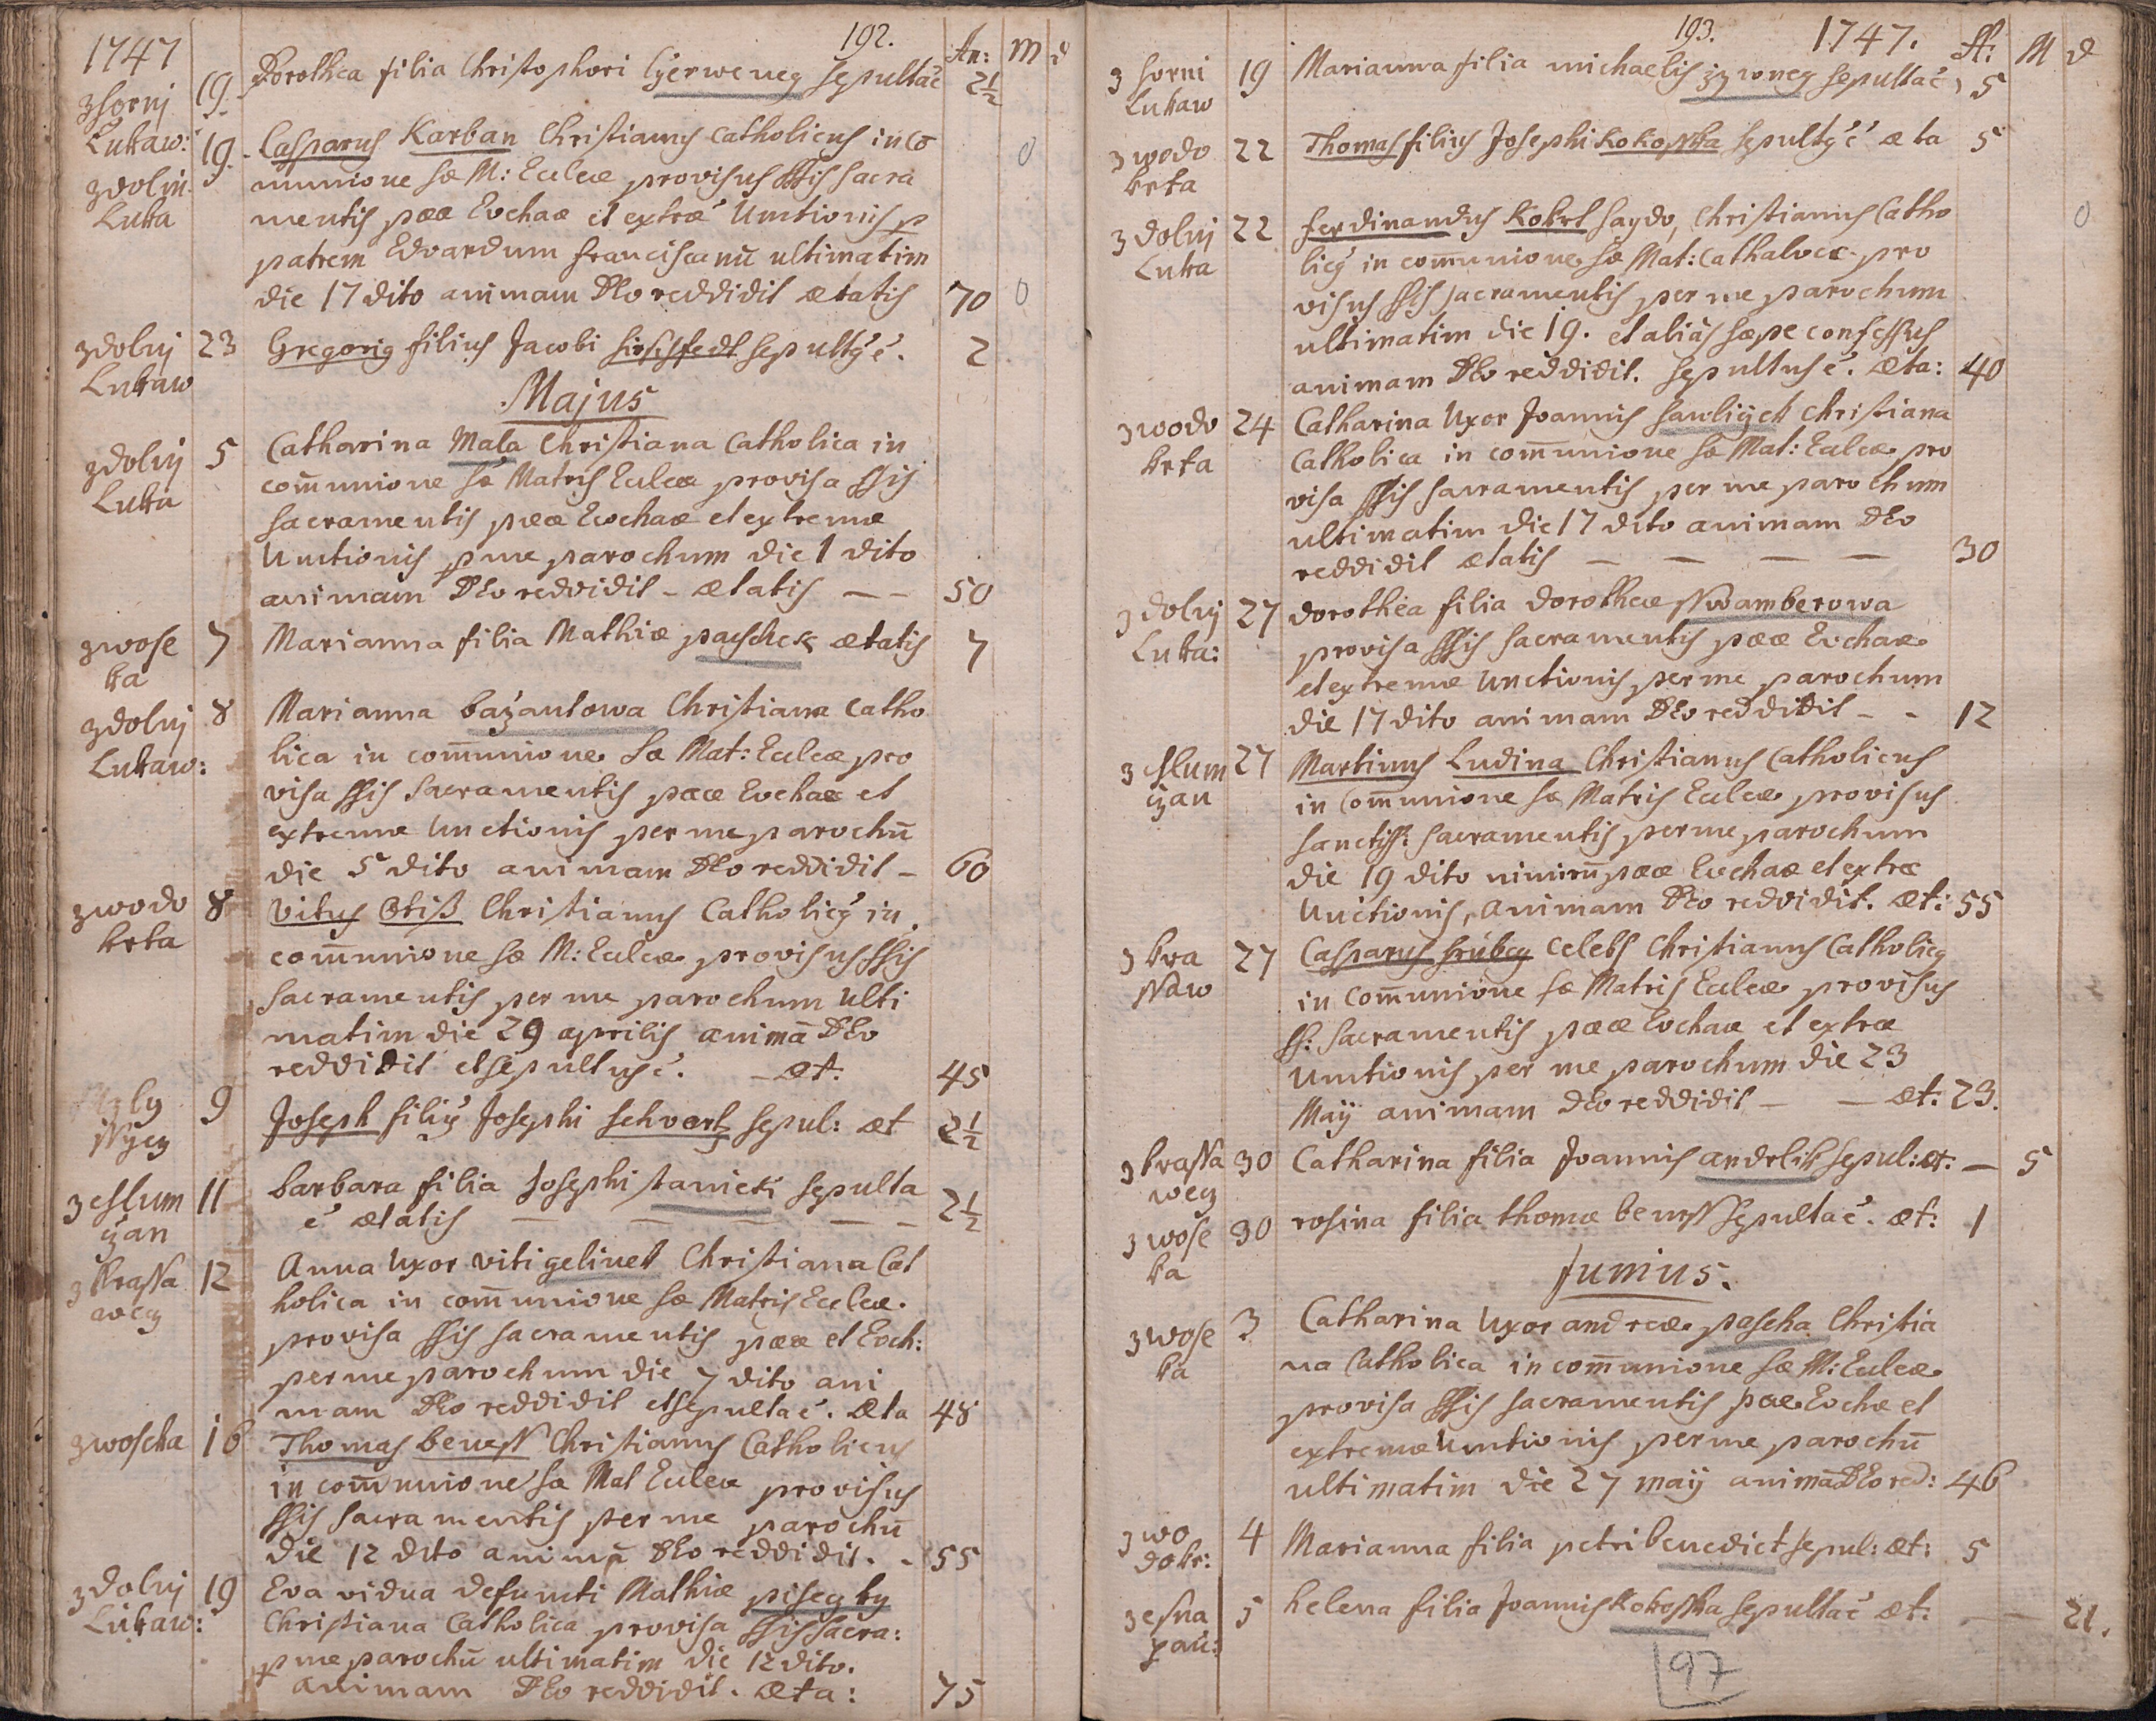 1747
192.
An: M d
z horni Lukaw: 19. Dorothea filia Christophori Czerweneg sepulta ē 2½
z dolni Luka 19. Casparus Karban Christianus Catholicus in cō
munione Sæ M: Ecclæ provisus SSis Sacra
mentis pææ Evchaæ et extræ Unctionis p
patrem Edvardum franciscanū ultimatim
die 17 dito animam DEo reddidit ætatis 70
z dolni Lukaw 23 Gregorig filius Jacobi hirschfedt sepultg ē. 2
Majus
z dolni Luka 5 Catharina Mala Christiana Catholica in
com̄unione Sæ Matris Ecclæ provisa SSis
Sacramentis pææ Evchaæ et extremæ
Unctionis p me parochum die 1 dito
animam DEo reddidit - ætatis — — 50
z wose ka 7 Marianna filia Mathiæ paschek ætatis 7
z dolni Lukaw: 8 Marianna bažantowa Christiana Catho
lica in com̄unione Sæ Mat: Ecclæ pro
visa SSis Sacramentis pææ Evchaæ et
extremæ Unctionis per me parochū
die 5 dito animam DEo reddidit - 60
z wodo krta 8 Vitus Otiß Christianus Catholicg in
com̄unione Sæ M: Ecclæ provisus SSis
Sacramentis per me parochum ulti
matim die 29 aprilis animā DEo
reddidit et sepultus ē. - æt. 45
9 Joseph filig Josephi Schvartz sepul: æt 2½
z chlum czan 11 barbara filia Josephi stanicki sepulta
ē ætatis — — — — - 2½
z krassa weg 12 Anna Uxor viti gelinek Christiana Cat
holica in com̄unione Sæ Matris Ecclæ.
provisa SSis sacramentis pææ et Evch:
per me parochum die 7 dito ani
mam DEo reddidit et sepulta ē. æta 48
z woseka 16 Thomas beness Christianus Catholicus
in com̄unione Sæ Mat Ecclæ provisus
SSis Sacramentis per me parochū
die 12 dito animā DEo reddidit. - 55
z dolni Lukaw: 19 Eva vidua defuncti Mathiæ piseg ky
Christiana Catholica provisa SSis Sacra:
p me parochū ultimatim die 12 dito.
animam DEo reddidit. æta: 75
193. 1747.
A: M d
z horni Lukaw 19 Marianna filia michaelis žy woneg sepulta ē, 5
z wodo krta 22 Thomas filius Josephi Kokosska sepultg ē æta 5
z dolni Luka 22 ferdinandus Kokrt haydo, Christianus Catho
licg in com̄unione Sæ Mat: Cathalocæ pro
visus SSis Sacramentis per me parochum
ultimatim die 19. et aliàs sæpe confessus
animam DEo reddidit. sepultus ē. æta: 40
z wodo krta 24 Catharina Uxor Joannis hawliček Christiana
Catholica in com̄unione Sæ Mat: Ecclæ pro
visa SSis Sacramentis per me parochum
ultimatim die 17 dito animam DEo
reddidit ætatis — — — — 30
z dolni Luka: 27 dorothea filia dorotheæ sswamberowa
provisa SSis Sacramentis pææ Evchaæ
et extremæ Unctionis, per me parochum
die 17 dito animam DEo reddidit - - 12
z chlum czan 27 Martinus Ludina Christianus Catholicus
in Com̄unione Sæ Matris Ecclæ provisus
sanctiss: Sacramentis per me parochum
die 19 dito nimirū pææ Evchaæ et extræ
Unctionis, animam DEo reddidit. æt: 55
z kra ssaw 27 Casparus hrubey Celebs Christianus Catholicg
in Com̄unione Sæ Matris Ecclæ provisus
SS: Sacramentis pææ Evchaæ et extræ
Unctionis per me parochum die 23
Maÿ animam DEo reddidit — — æt: 23.
z krassa weg 30 Catharina filia Joannis andrlik sepul: æt: — 5
z wose ka 30 rosina filia thomæ beness sepulta ē. æt: 1
Junius.
z wose ka 3 Catharina Uxor andreæ pascha Christia
na Catholica in com̄unione Sæ M: Ecclæ
provisa SSis Sacramentis pææ Evchæ et
extremæ Unctionis per me parochū
ultimatim die 27 maÿ animā DEo red: 46
z wo dokr: 4 Marianna filia petri benedict sepul: æt: 5
5 helena filia Joannis Kokosska sepulta ē æt: — 21.
97